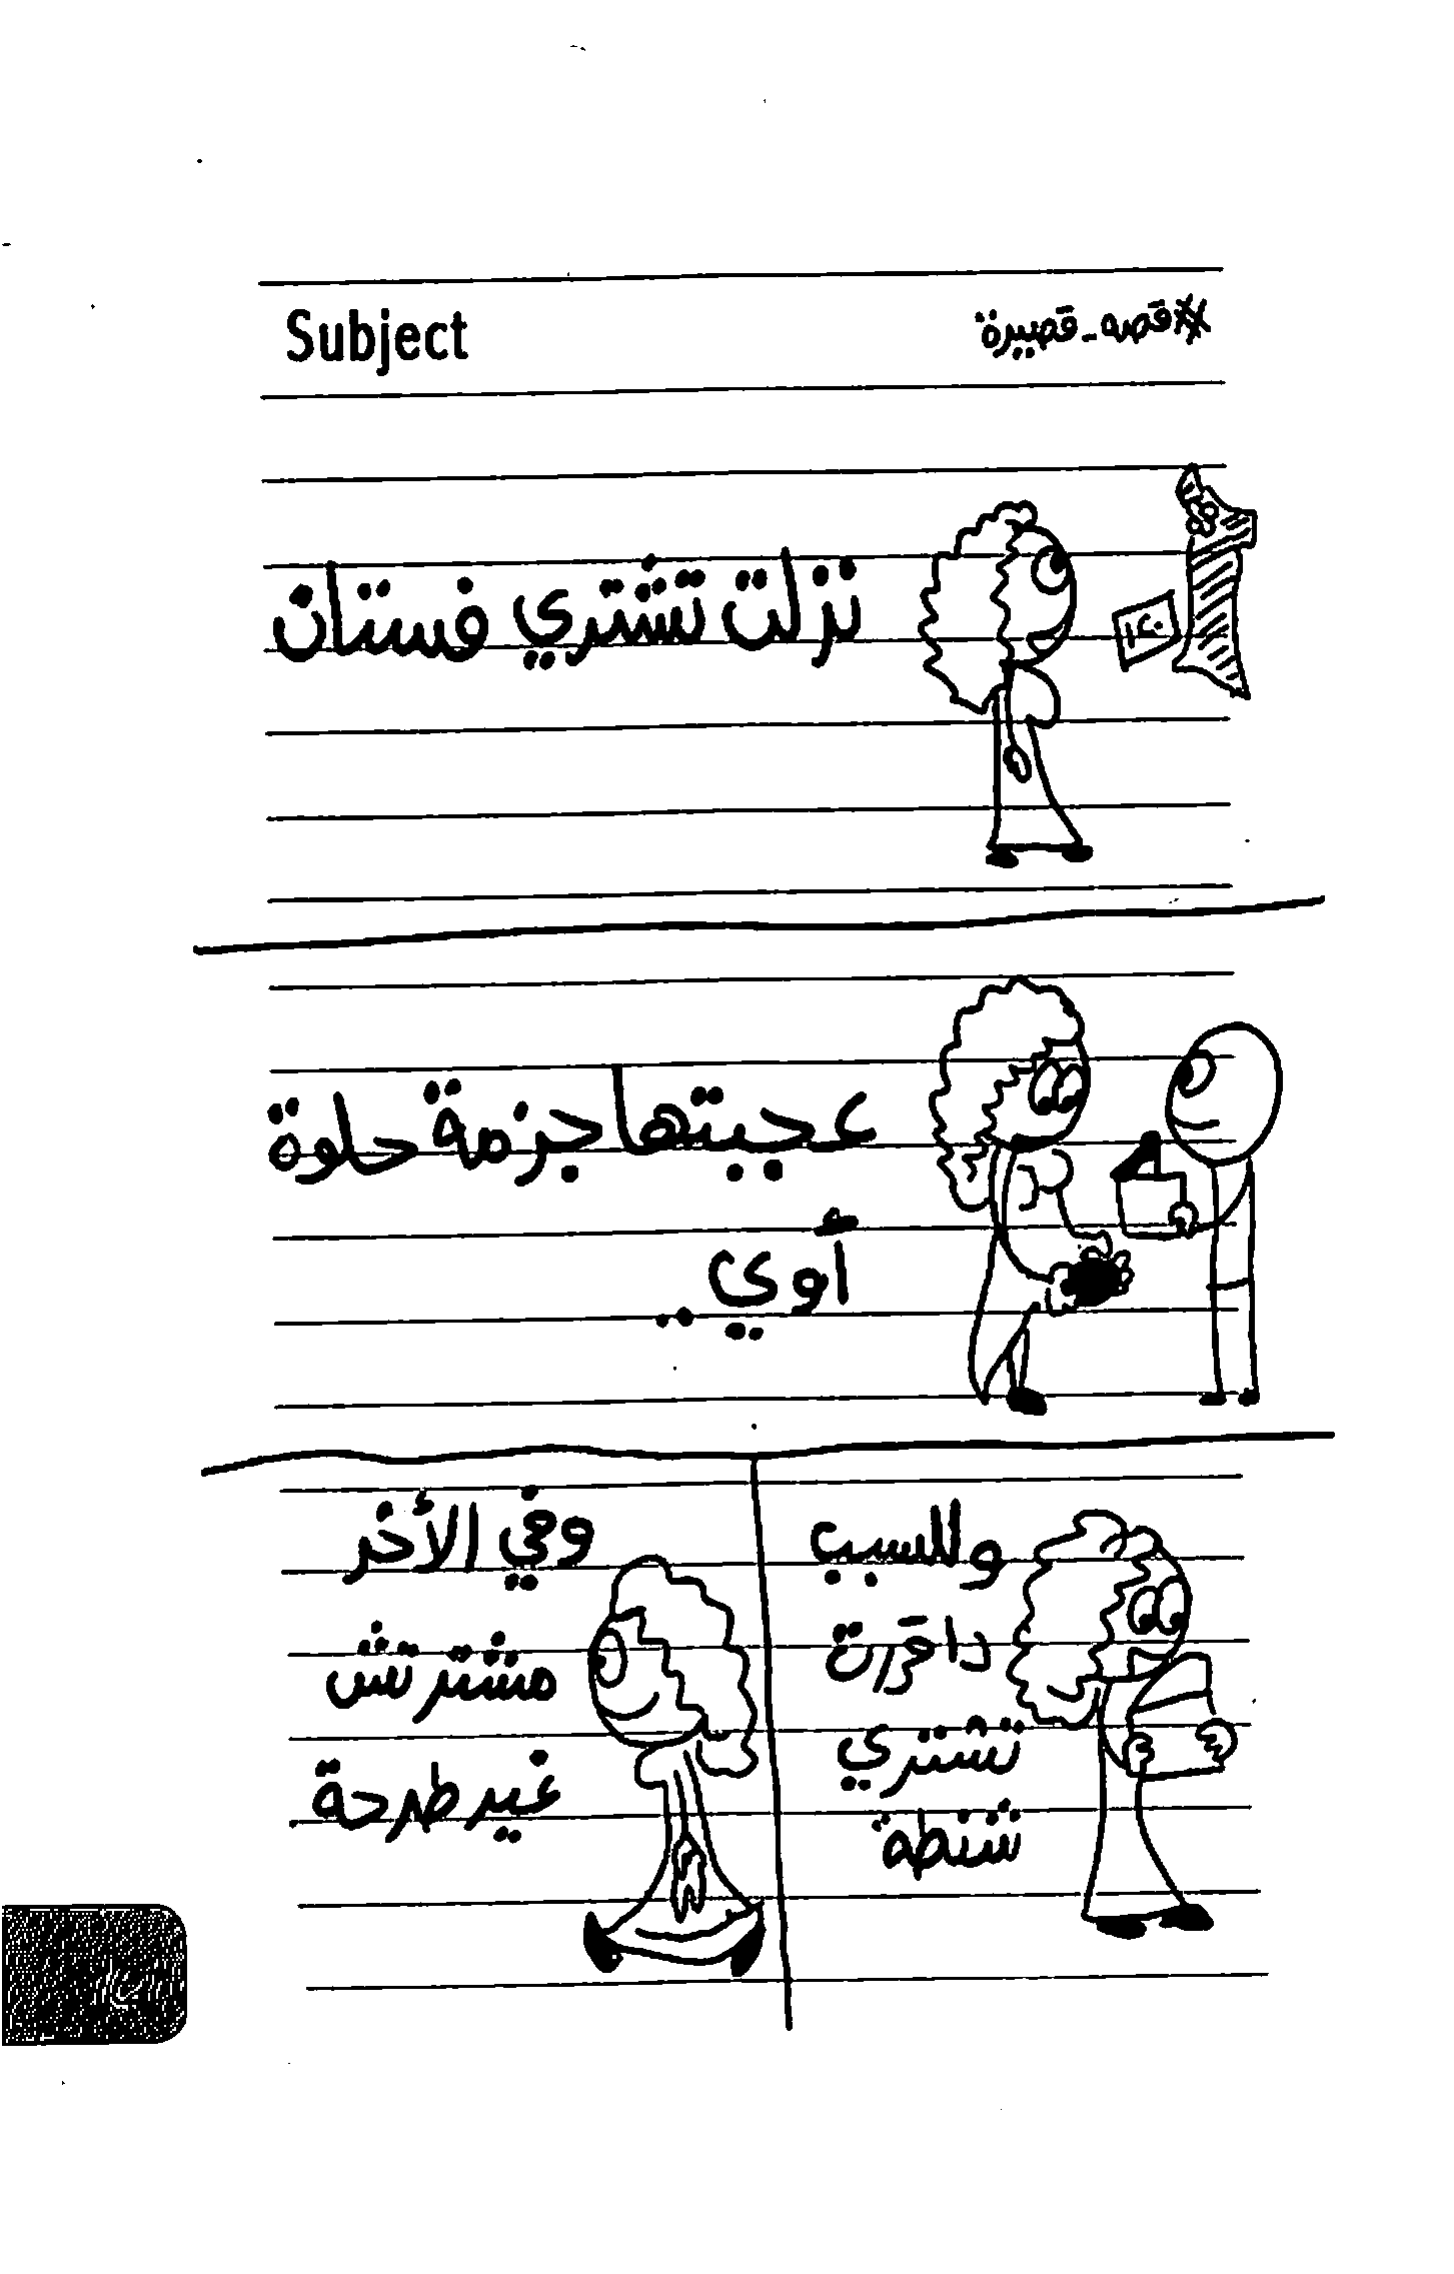 Subject
#قصه_قصيرة
نزلت تشتري فستان
١٤٠
عجبتها جزمة حلوة
أوي ..
وللسبب
دا قررت
تشتري
شنطة
وفي الأخر
مشترتش
غير طرحة